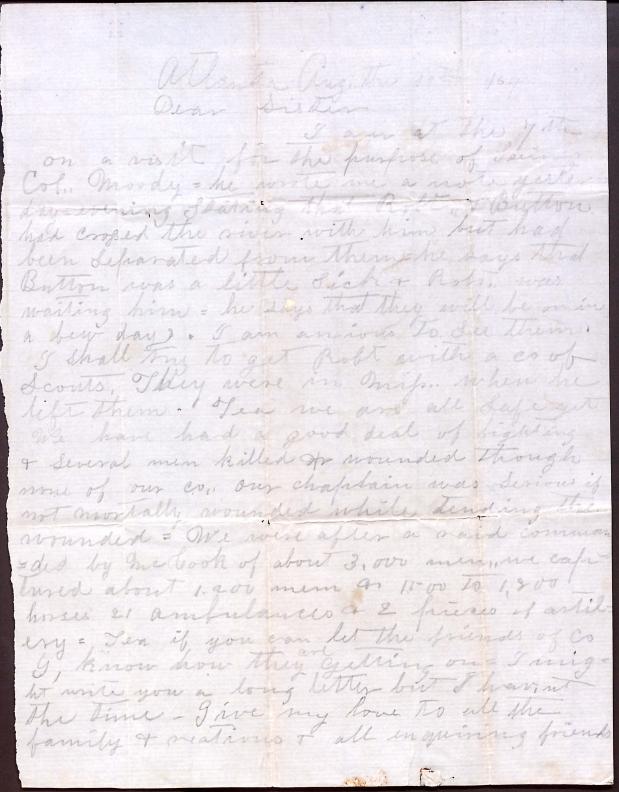 Atlanta Aug. the 10th
Dear Sister
I am at the 7th
on a visit for the purpose of seeing
Col. Moody = he wrote me a note yester
day evening Stating that Robt & Button
had crosed the river with him but had
been Separated from them he says that
Button was a little Sick & Robt. was
waiting him = he says that they will be in in
a few days. I am anxious to See them.
I Shall try to get Robt with a co of
Scouts. They were in Miss. when he
left them. Tea we are all Safe yet
We have had a good deal of fighting
& Several men killed & wounded though
none of our co. our chaptain was Serious if
not mortally wounded while tending the
wounded = We were after a raid comman
=ded by McCook of about 3,000 men, we cap
tured about 1.200 men & 1500 to 1,800
horses 21 ambulances & 2 pieces of artil-
ery = Tea if you can let the friends of Co
G, know how they are getting on = I mig-
ht write you a long letter but I havint
the time - Give my love to all the
family & relations & all enquiring friends